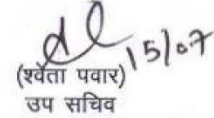 15/07
(श्वेता पवार)
उप सचिव